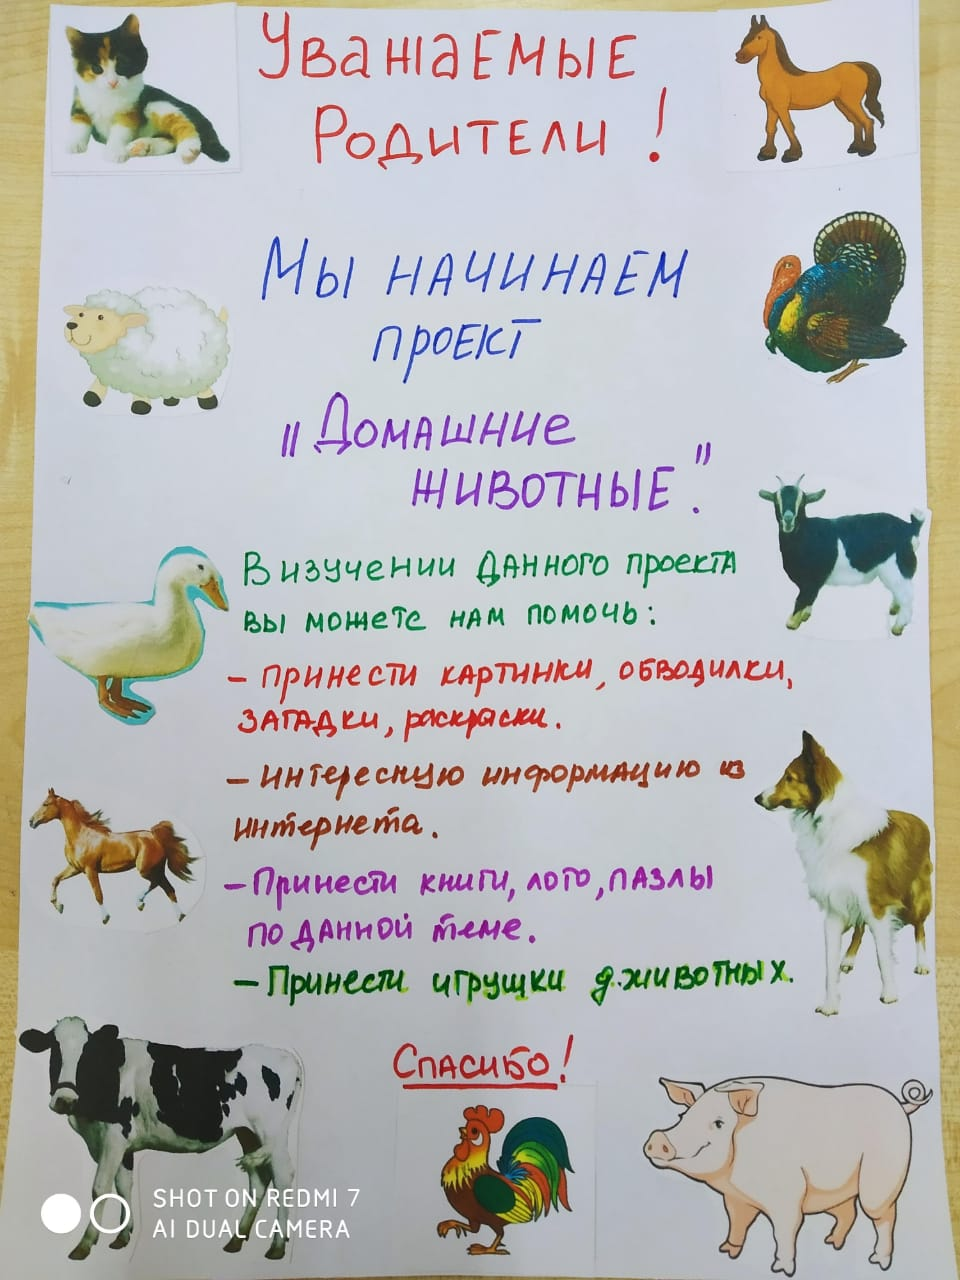 Уважаемые
Родители!
Мы начинаем
проект
"Домашние
животные".
В изучении данного проекта
вы можете нам помочь:
- принести картинки, обводилки,
загадки, раскраски.
- интересную информацию из
интернета.
- Принести книги, лото, пазлы
по данной теме.
- Принести игрушки д.животных.
Спасибо!
SHOT ON REDMI 7
AI DUAL CAMERA